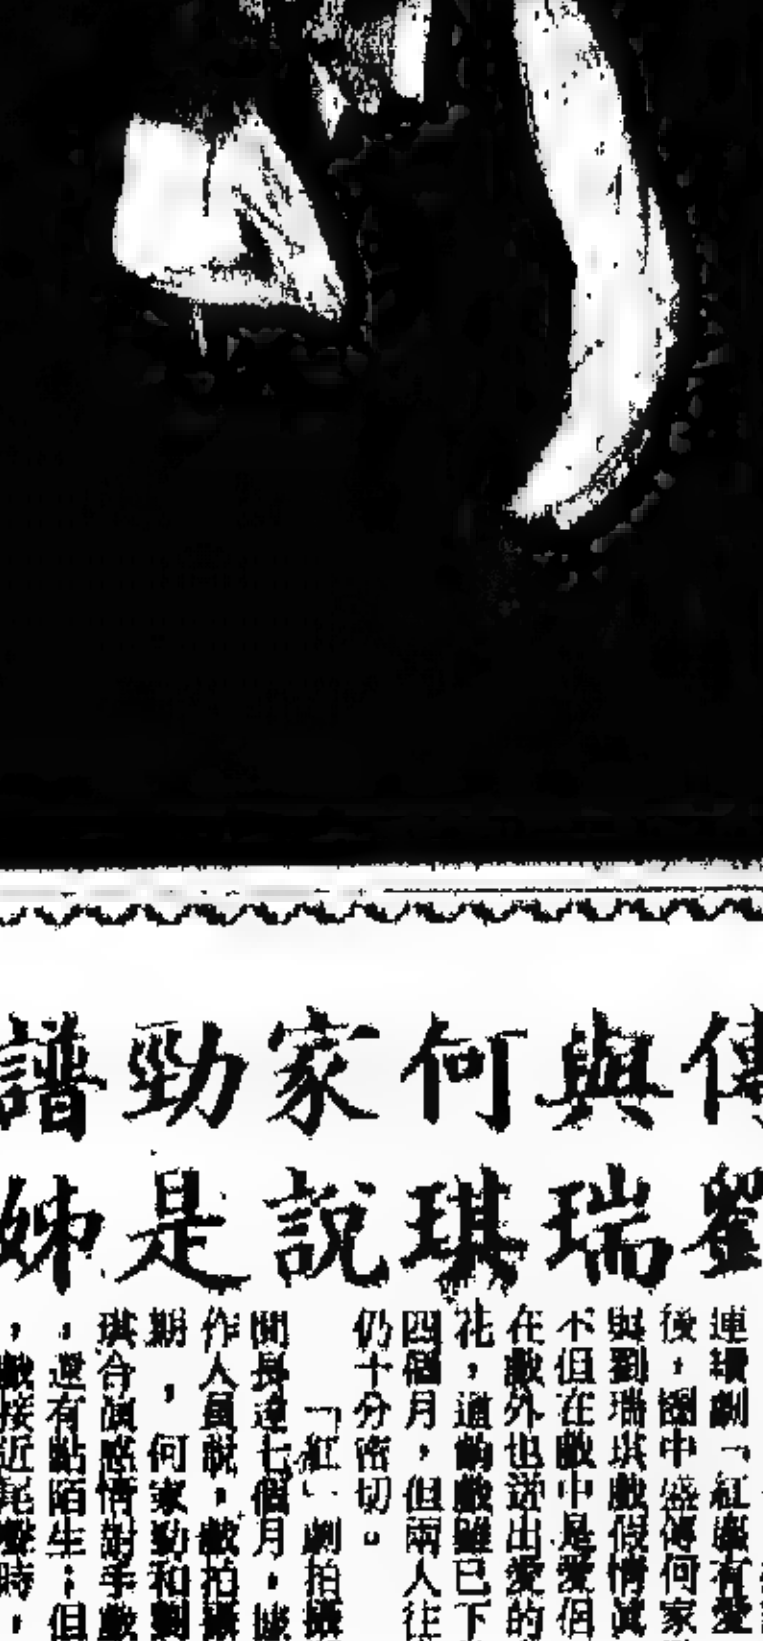 傳與何家勁譜
劉瑞琪說是姊
連續劇「紅塵有愛
後，圈中盛傳何家
與劉瑞琪戲假情真
不但在戲中是愛侶
在戲外也迸出愛的
花，這齣戲雖已下
四個月，但兩人往
仍十分密切。
「紅」劇拍攝
間長達七個月，據
作人員說，戲拍攝
期，何家勁和劉
琪合演感情對手戲
，還有點陌生；但
，戲接近尾聲時，